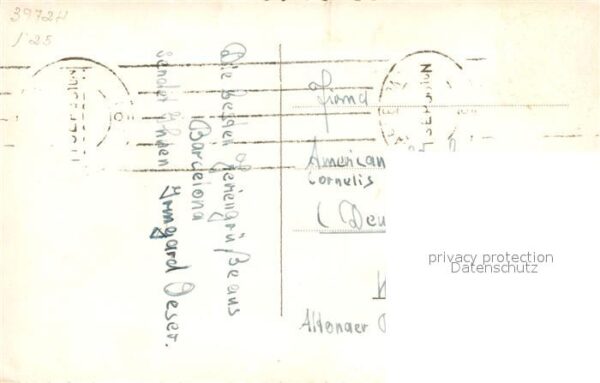 39724
1 25
Die besten Feriengrüße aus
Barcelona
sendet Ihnen Irmgard Oeser.
Firma
American
Cornelis
( Deu
Altonaer
privacy protection
Datenschutz